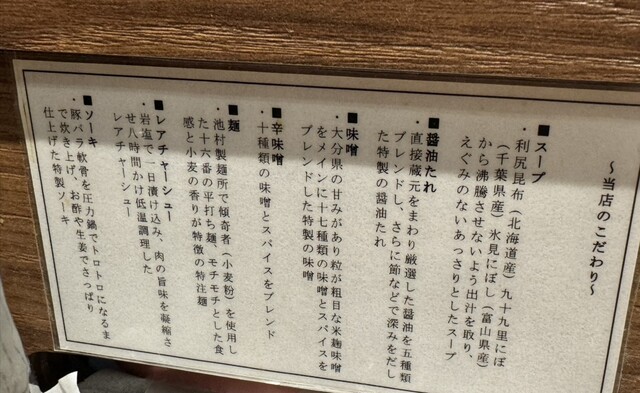 〜当店のこだわり〜
■スープ
・利尻昆布（北海道産）九十九里にぼ
（千葉県産）氷見にぼし（富山県産）
から沸騰させないよう出汁を取り、
えぐみのないあっさりとしたスープ
■醤油たれ
・直接蔵元をまわり厳選した醤油を五種類
ブレンドし、さらに節などで深みをだし
た特製の醤油たれ
■味噌
・大分県の甘みがあり粒が粗目な米麹味噌
をメインに十七種類の味噌とスパイスを
ブレンドした特製の味噌
■辛味噌
・十種類の味噌とスパイスをブレンド
■麺
・池村製麺所で傾奇者（小麦粉）を使用し
た十六番の平打ち麺、モチモチとした食
感と小麦の香りが特徴の特注麺
■レアチャーシュー
・岩塩で一日漬け込み、肉の旨味を凝縮さ
せ八時間かけ低温調理した
レアチャーシュー
■ソーキ
・豚バラ軟骨を圧力鍋でトロトロになるま
で炊き上げ、お酢や生姜でさっぱり
仕上げた特製ソーキ